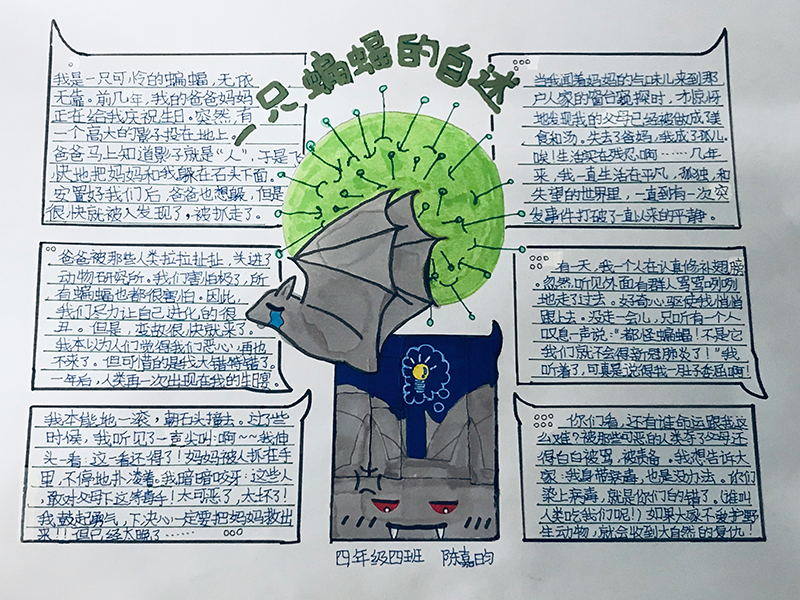 一只蝙蝠的自述
我是一只可怜的蝙蝠,无依
无靠。前几年,我的爸爸妈妈
正在给我庆祝生日。突然,有
一个高大的影子投在地上。
爸爸马上知道影子就是“人”,于是飞
快地把妈妈和我躲在石头下面。
安置好我们后,爸爸也想躲,但是
很快就被人发现了,被抓走了。
爸爸被那些人类拉拉扯扯,头进了
动物研究所。我们害怕极了,所
有蝙蝠也都很害怕。因此,
我们尽力让自己进化的很
丑。但是,变故很快就来了。
我本以为人们觉得我们恶心,再也
不来了。但可惜的是我大错特错了。
一年后,人类再一次出现在我的生日宴
我本能地一滚,朝石头撞去。过了些
时候,我听见了一声尖叫:啊~~我伸
头一看:这一看还得了!妈妈被人抓在手
里,不停地扑凌着。我暗暗咬牙:这些人,
敢对父母下这等毒手!太可恶了,太坏了!
我鼓起勇气,下决心一定要把妈妈救出
来!!但已经太晚了……
当我闻着妈妈的气味儿来到那
户人家的窗台窥探时,才惊讶
地发现我的父母已经被做成了美
食和汤。失去了爸妈,我成了孤儿。
唉!生活实在残忍啊……几年
来,我一直生活在平凡,孤独,和
失望的世界里,一直到有一次突
发事件打破了一直以来的平静。
有一天,我一个人在认真修补翅膀
。忽然,听见外面有群人骂骂咧咧
地走了过去。好奇心驱使我悄悄
跟上去。没走一会儿,只听有一个人
叹息一声说:“都怪蝙蝠!不是它
我们就不会得新冠肺炎了!”我
听着了,可真是说得我一肚子委屈啊!
你们看,还有谁命运跟我这
么难?被那些可恶的人类杀了父母还
得白白被骂,被责备。我想告诉大
家:我自带病毒,也是没办法。你们
染上病毒,就是你们的错了。(谁叫
人类吃我们呢!)如果大家不爱护野
生动物,就会收到大自然的复仇!
四年级四班 陈嘉昀